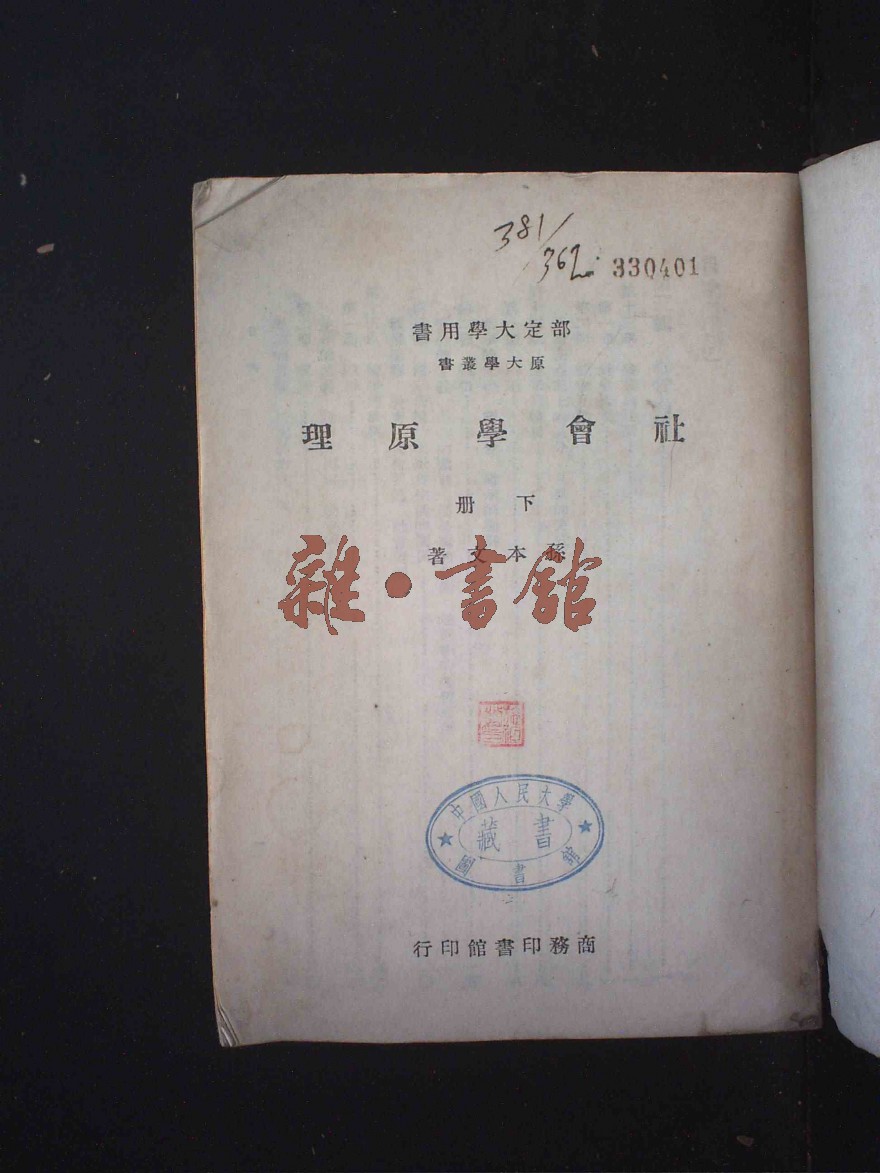 381/
362
330401
部定大學用書
原大學叢書
社會學原理
下册
孫本文著
雜·書館
中國人民大學
藏書
圖書館
商務印書館印行